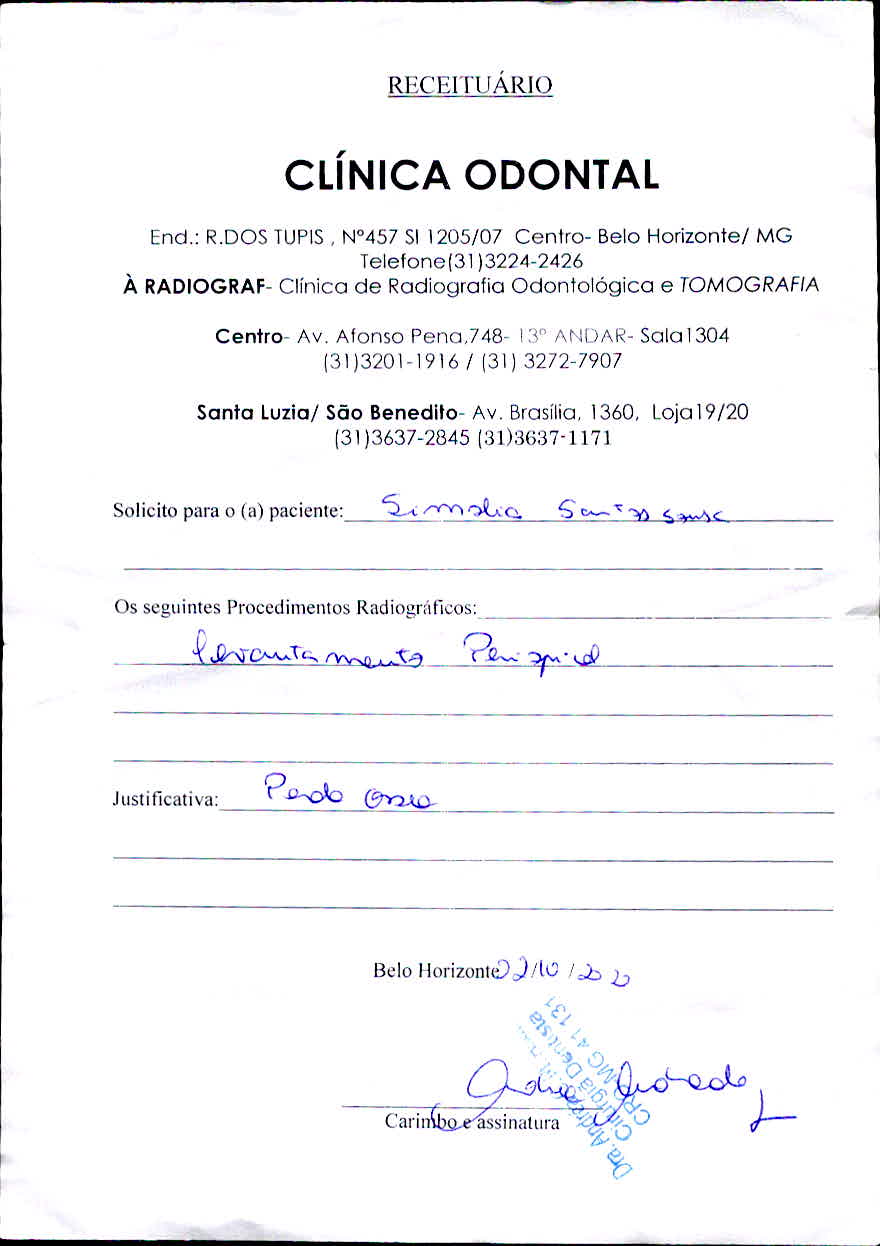 RECEITUÁRIO
CLÍNICA ODONTAL
End.: R.DOS TUPIS , Nº457 Sl 1205/07 Centro- Belo Horizonte/ MG
Telefone(31)3224-2426
À RADIOGRAF- Clínica de Radiografia Odontológica e TOMOGRAFIA
Centro- Av. Afonso Pena,748- 13º ANDAR- Sala1304
(31)3201-1916 / (31) 3272-7907
Santa Luzia/ São Benedito- Av. Brasília, 1360, Loja19/20
(31)3637-2845 (31)3637-1171
Solicito para o (a) paciente: Santos
Os seguintes Procedimentos Radiográficos:
levantamento Periapical
Justificativa: Perda óssea
Belo Horizonte 22/10 /
Carimbo e assinatura
Dra.
Cirurgiã Dentista
CRO MG 41 131